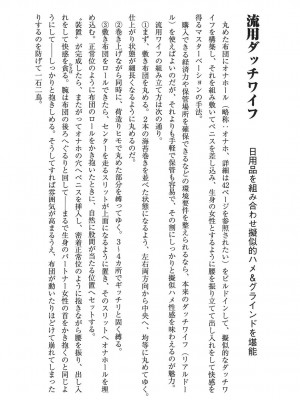 流用ダッチワイフ
日用品を組み合わせ擬似的ハメ&グラインドを堪能
丸めた布団にオナホール(略称:オナホ、詳細は42ページを参照されたい)をビルドインして、擬似的なダッチワ
イフを構築し、それを組み敷いてペニスを差し込み、生身の女性とするように腰を振り立てて出し入れをして快感を
得るマスターベーションの手法。
購入できる経済力や保管場所を確保できるなどの環境要件を整えられるなら、本来のダッチワイフ(リアルドー
ル)を使えばよいのだが、それよりも手軽で保管も容易で、その割にしっかりと擬似ハメ性感を味わえるのが魅力。
流用ワイフの組み立て方は次の通り。
①まず、敷き布団を丸める。2本の海苔巻きを並べた状態になるよう、左右両方向から中央へ、均等に丸めてゆく。
仕上がり状態が細長くなるように丸めるのだ。
②巻き上げながら同時に、荷造りヒモで丸めた部分を縛ってゆく。3〜4カ所でギッチリと固く縛る。
③敷き布団をロールできたら、センターを走るスリットが上面になるように置き、そのスリットへオナホールを埋
め込む。正常位のように布団のロールをかき抱いたときに、自然に股間が当たる位置へセットする。
「装置」が完成したら、またがってオナホの穴へペニスを挿入し、密着正常位のように抱きながら腰を振り、出し入
れをして快感を貪る。腕は布団の後ろへぐるりと回して――まるで生身のパートナー女性の首をかき抱くのと同じよ
うにして――しっかりと抱きしめる。そうしてすれば雰囲気が高まるうえ、布団が動いたりほどけて崩れてしまった
りするのを防げて一石二鳥。